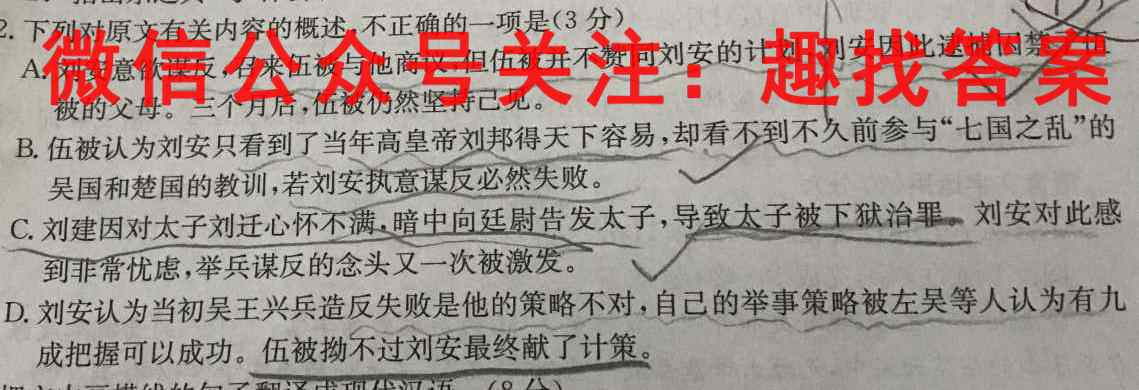 2. 下列对原文有关内容的概述,不正确的一项是(3 分)
微信公众号关注：趣找答案
A. 刘安意欲谋反,召来伍被与他商议,但伍被并不赞同刘安的计划,刘安因此逮捕囚禁了伍
被的父母。三个月后,伍被仍然坚持己见。
B. 伍被认为刘安只看到了当年高皇帝刘邦得天下容易,却看不到不久前参与“七国之乱”的
吴国和楚国的教训,若刘安执意谋反必然失败。
C. 刘建因对太子刘迁心怀不满,暗中向廷尉告发太子,导致太子被下狱治罪。刘安对此感
到非常忧虑,举兵谋反的念头又一次被激发。
D. 刘安认为当初吴王兴兵造反失败是他的策略不对,自己的举事策略被左吴等人认为有九
成把握可以成功。伍被拗不过刘安最终献了计策。